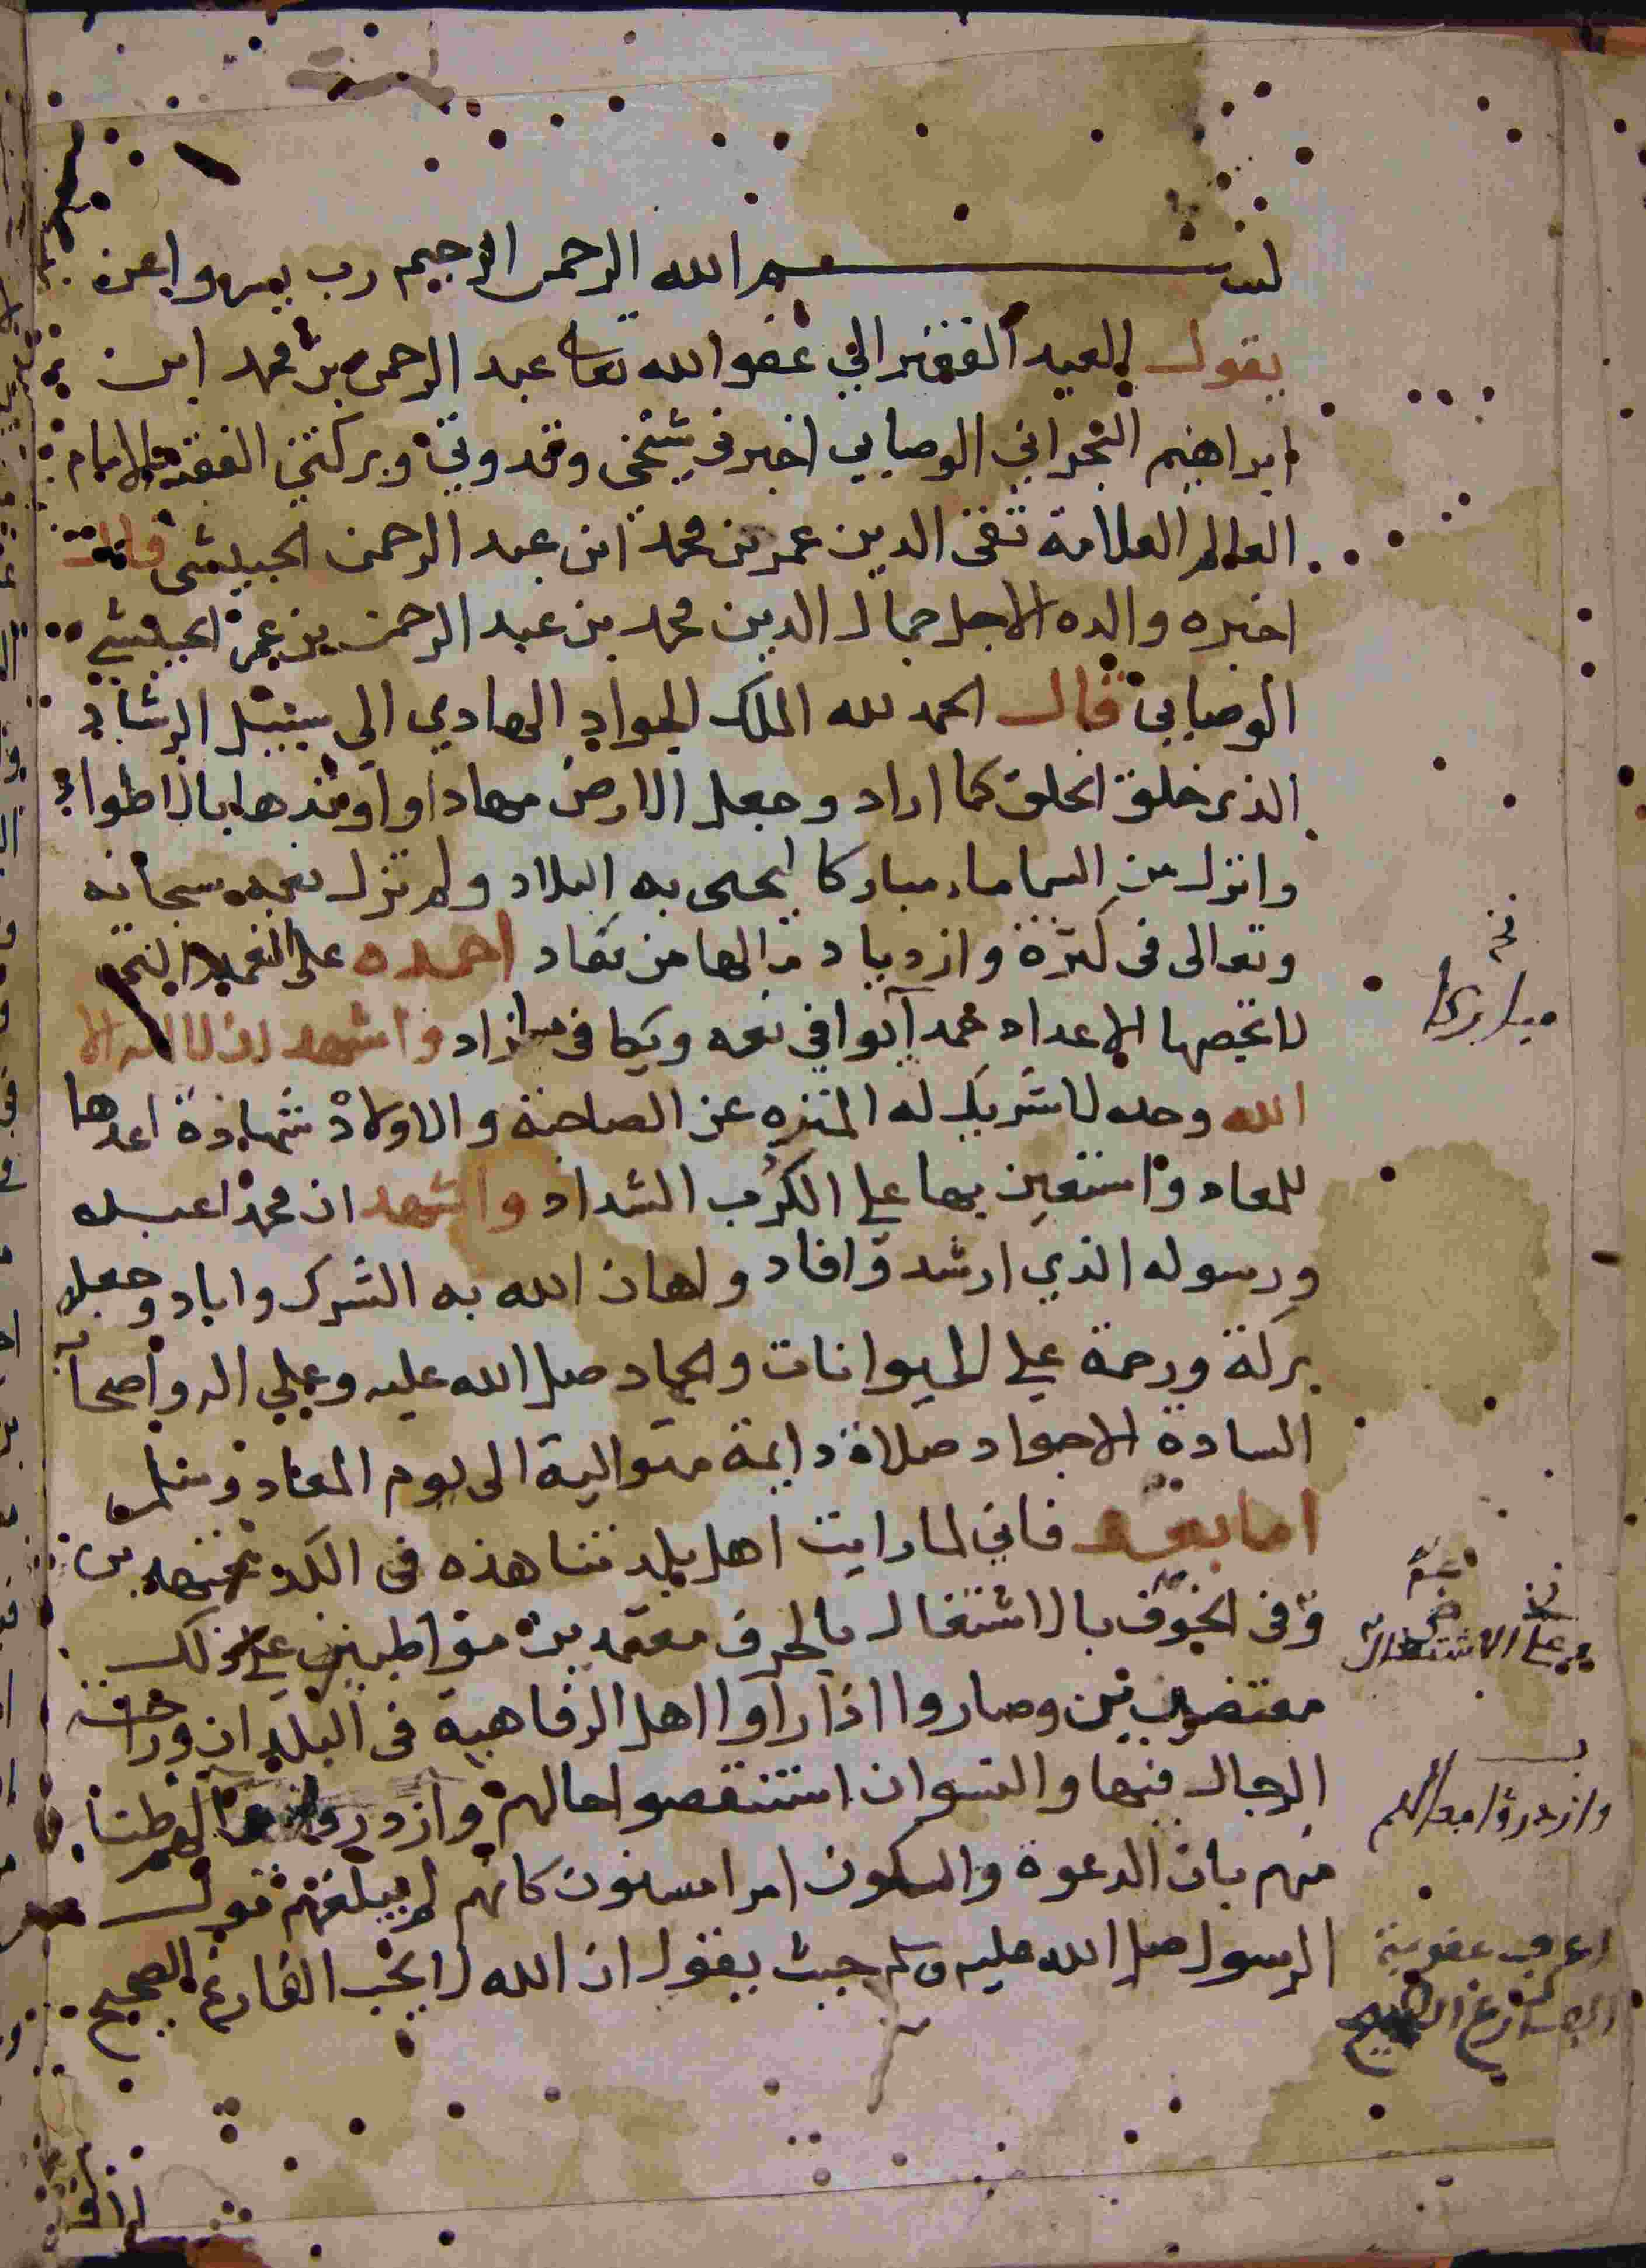 بسم الله الرحمن الرحيم رب يسر واعن
يقول العبد الفقير الى عفو الله تعالى عبد الرحمن بن محمد ابن
ابراهيم النجراني الوصابي اخبرني شيخي وقدوتي وبركتي الفقيه الامام
العالم العلامة تقي الدين عمر بن محمد ابن عبد الرحمن الحبيشي قال
اخبره والده الاجل جمال الدين محمد بن عبد الرحمن بن عمر الحبيشي
الوصابي قال الحمد لله الملك الجواد الهادي الي سبيل الرشاد
الذي خلق الخلق كما اراد وجعل الارض مهادا واوتدها بالاطواد
وانزل من السما ماء مباركا ليحيى به البلاد ولم تزل نعمه سبحانه
وتعالى في كثرة وازدياد مالها من نفاد احمده على نعمه التي
لا تحصيها الاعداد حمدا يوافي نعمه ويكافي مزاد واشهد ان لا اله الا
الله وحده لا شريك له المنزه عن الصاحبة والاولاد شهادة اعدها
للمعاد واستعين بها علي الكرب الشداد واشهد ان محمدا عبده
ورسوله الذي ارشد وافاد واهان الله به الشرك واباد وجعله
بركة ورحمة علي الحيوانات والجماد صلى الله عليه وعلي اله واصحابه
السادة الاجواد صلاة دايمة متوالية الى يوم المعاد وسلم
اما بعد فاني لما رايت اهل بلدتنا هذه في الكد مجتهدين
وفي الخوف بالاشتغال بالحرف معتمدين مواظبين علي ذلك
مقتصرين وصاروا اذا راوا اهل الرفاهية في البلدان وراحة
الرجال فيها والنسوان استنقصوا حالهم وازدروا ظنا
منهم بان الدعوة والسكون امر مسنون كانهم لم يبلغهم قول
الرسول صلى الله عليه وسلم حيث يقول ان الله لا يحب الفارغ الصحيح
مباركا
على الاشتغال
وازدروا افعالهم
اعرف عقوبة
الفارغ الصحيح